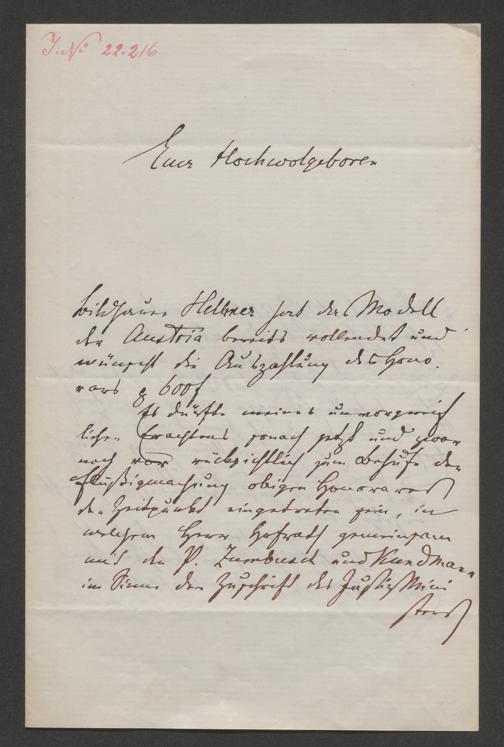 J. No 22.216
Euer Hochwolgeboren
Bildhauer Hellmer hat das Modell
der Austria bereits vollendet und
wünscht die Auszahlung des Hono-
rars p 600 f
Es dürfte meines unvorgreif
lichen Erachtens sonach jetzt und zwar
noch vor rücksichtlich zum Behufe der
Flüßigmachung obigen Honorares
der Zeitpunkt eingetreten sein, in
welchem Herr Hofrath gemeinsam
mit den P. Zumbusch und Kundmann
im Sinne der Zuschrift des JustizMini